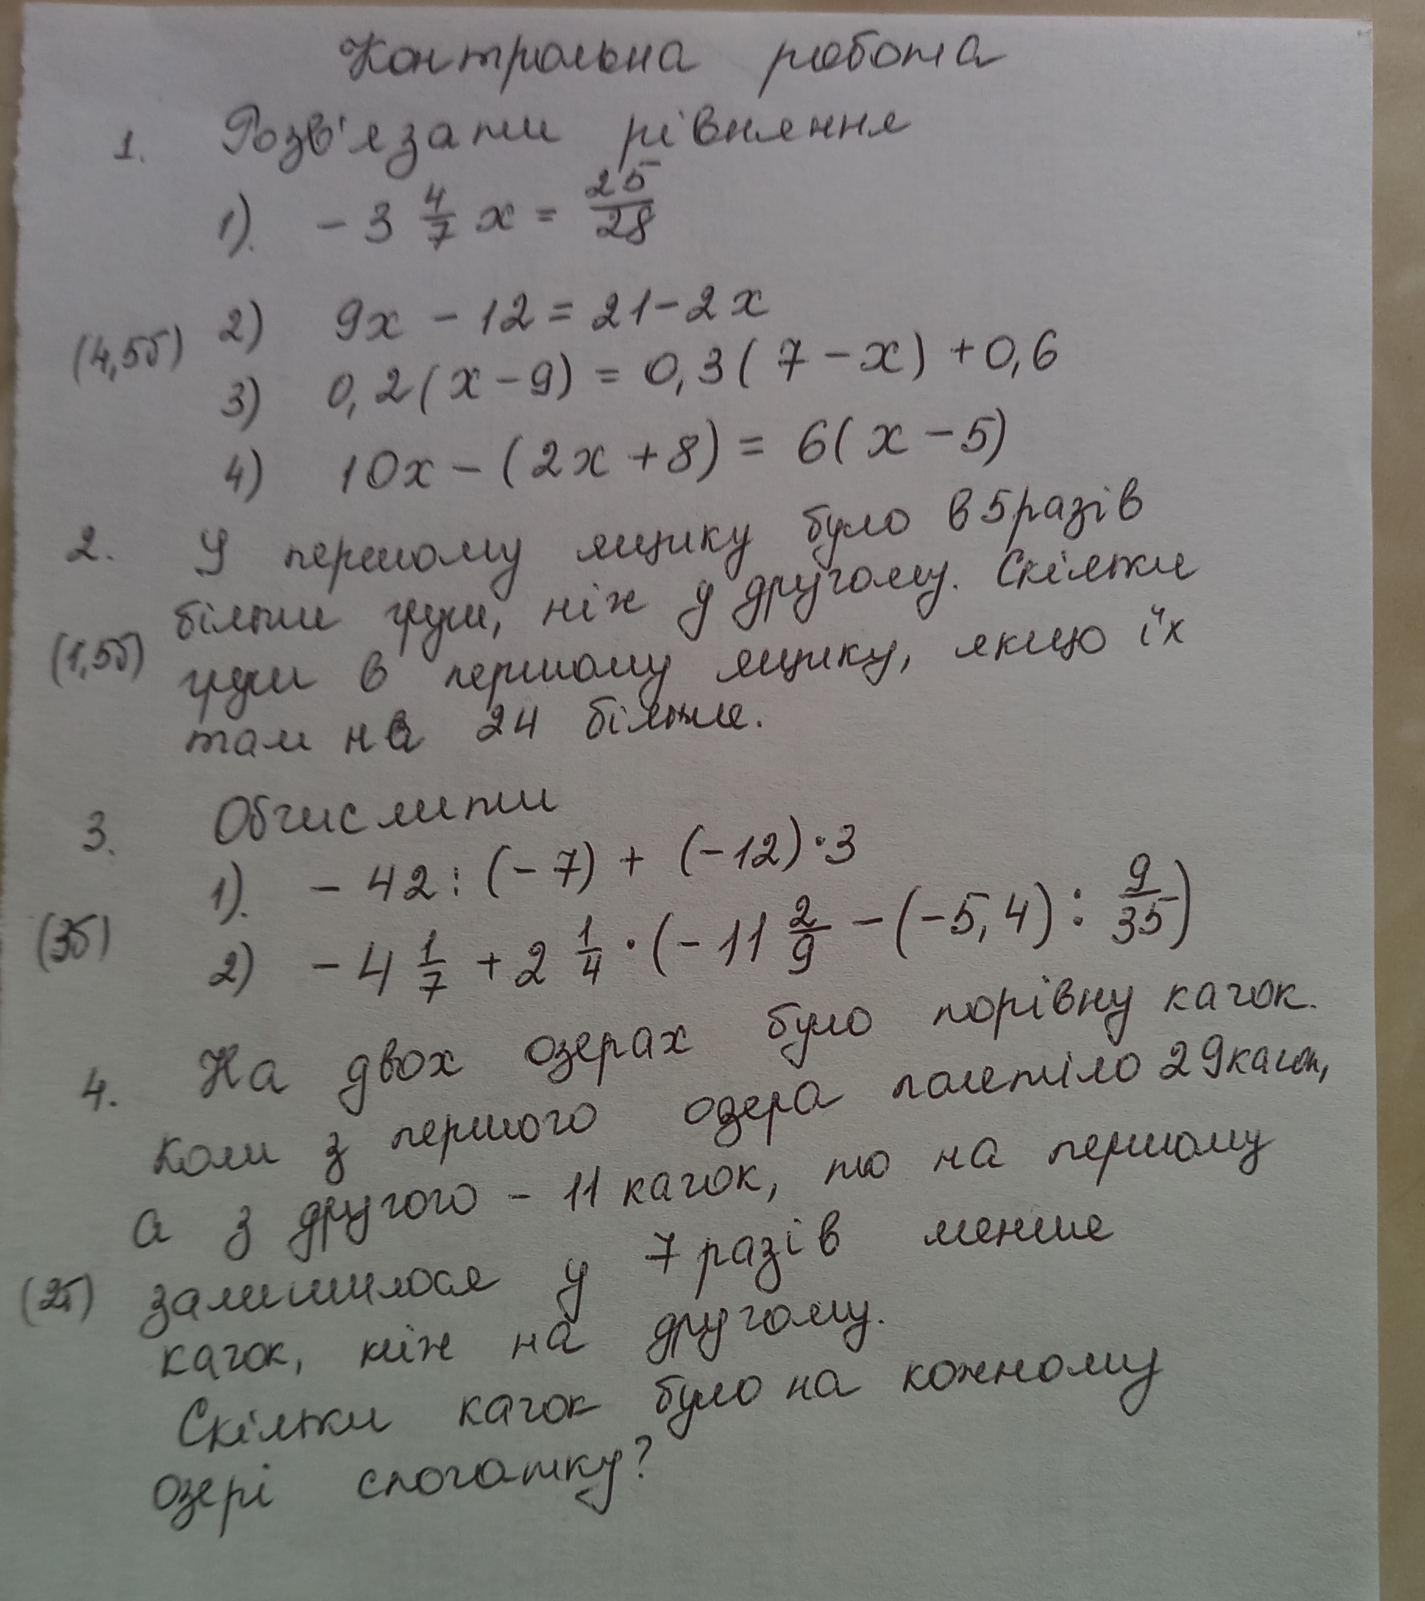 Контрольна робота
1. Розв'язати рівняння
1). - 3 4/7 x = 25/28
2) 9x - 12 = 21 - 2x
(4,5б)
3) 0,2(x - 9) = 0,3(7 - x) + 0,6
4) 10x - (2x + 8) = 6(x - 5)
2. У першому ящику було в 5 разів
більше груш, ніж у другому. Скільки
(1,5б) груш в першому ящику, якщо їх
там на 24 більше.
3. Обчислити
1). - 42 : (-7) + (-12) · 3
(3б) 2) - 4 1/7 + 2 1/4 · (- 11 2/9 - (-5,4) : 9/35)
4. На двох озерах було порівну качок.
Коли з першого озера полетіло 29 качок,
а з другого - 11 качок, то на першому
(2б) залишилося у 7 разів менше
качок, ніж на другому.
Скільки качок було на кожному
озері спочатку?